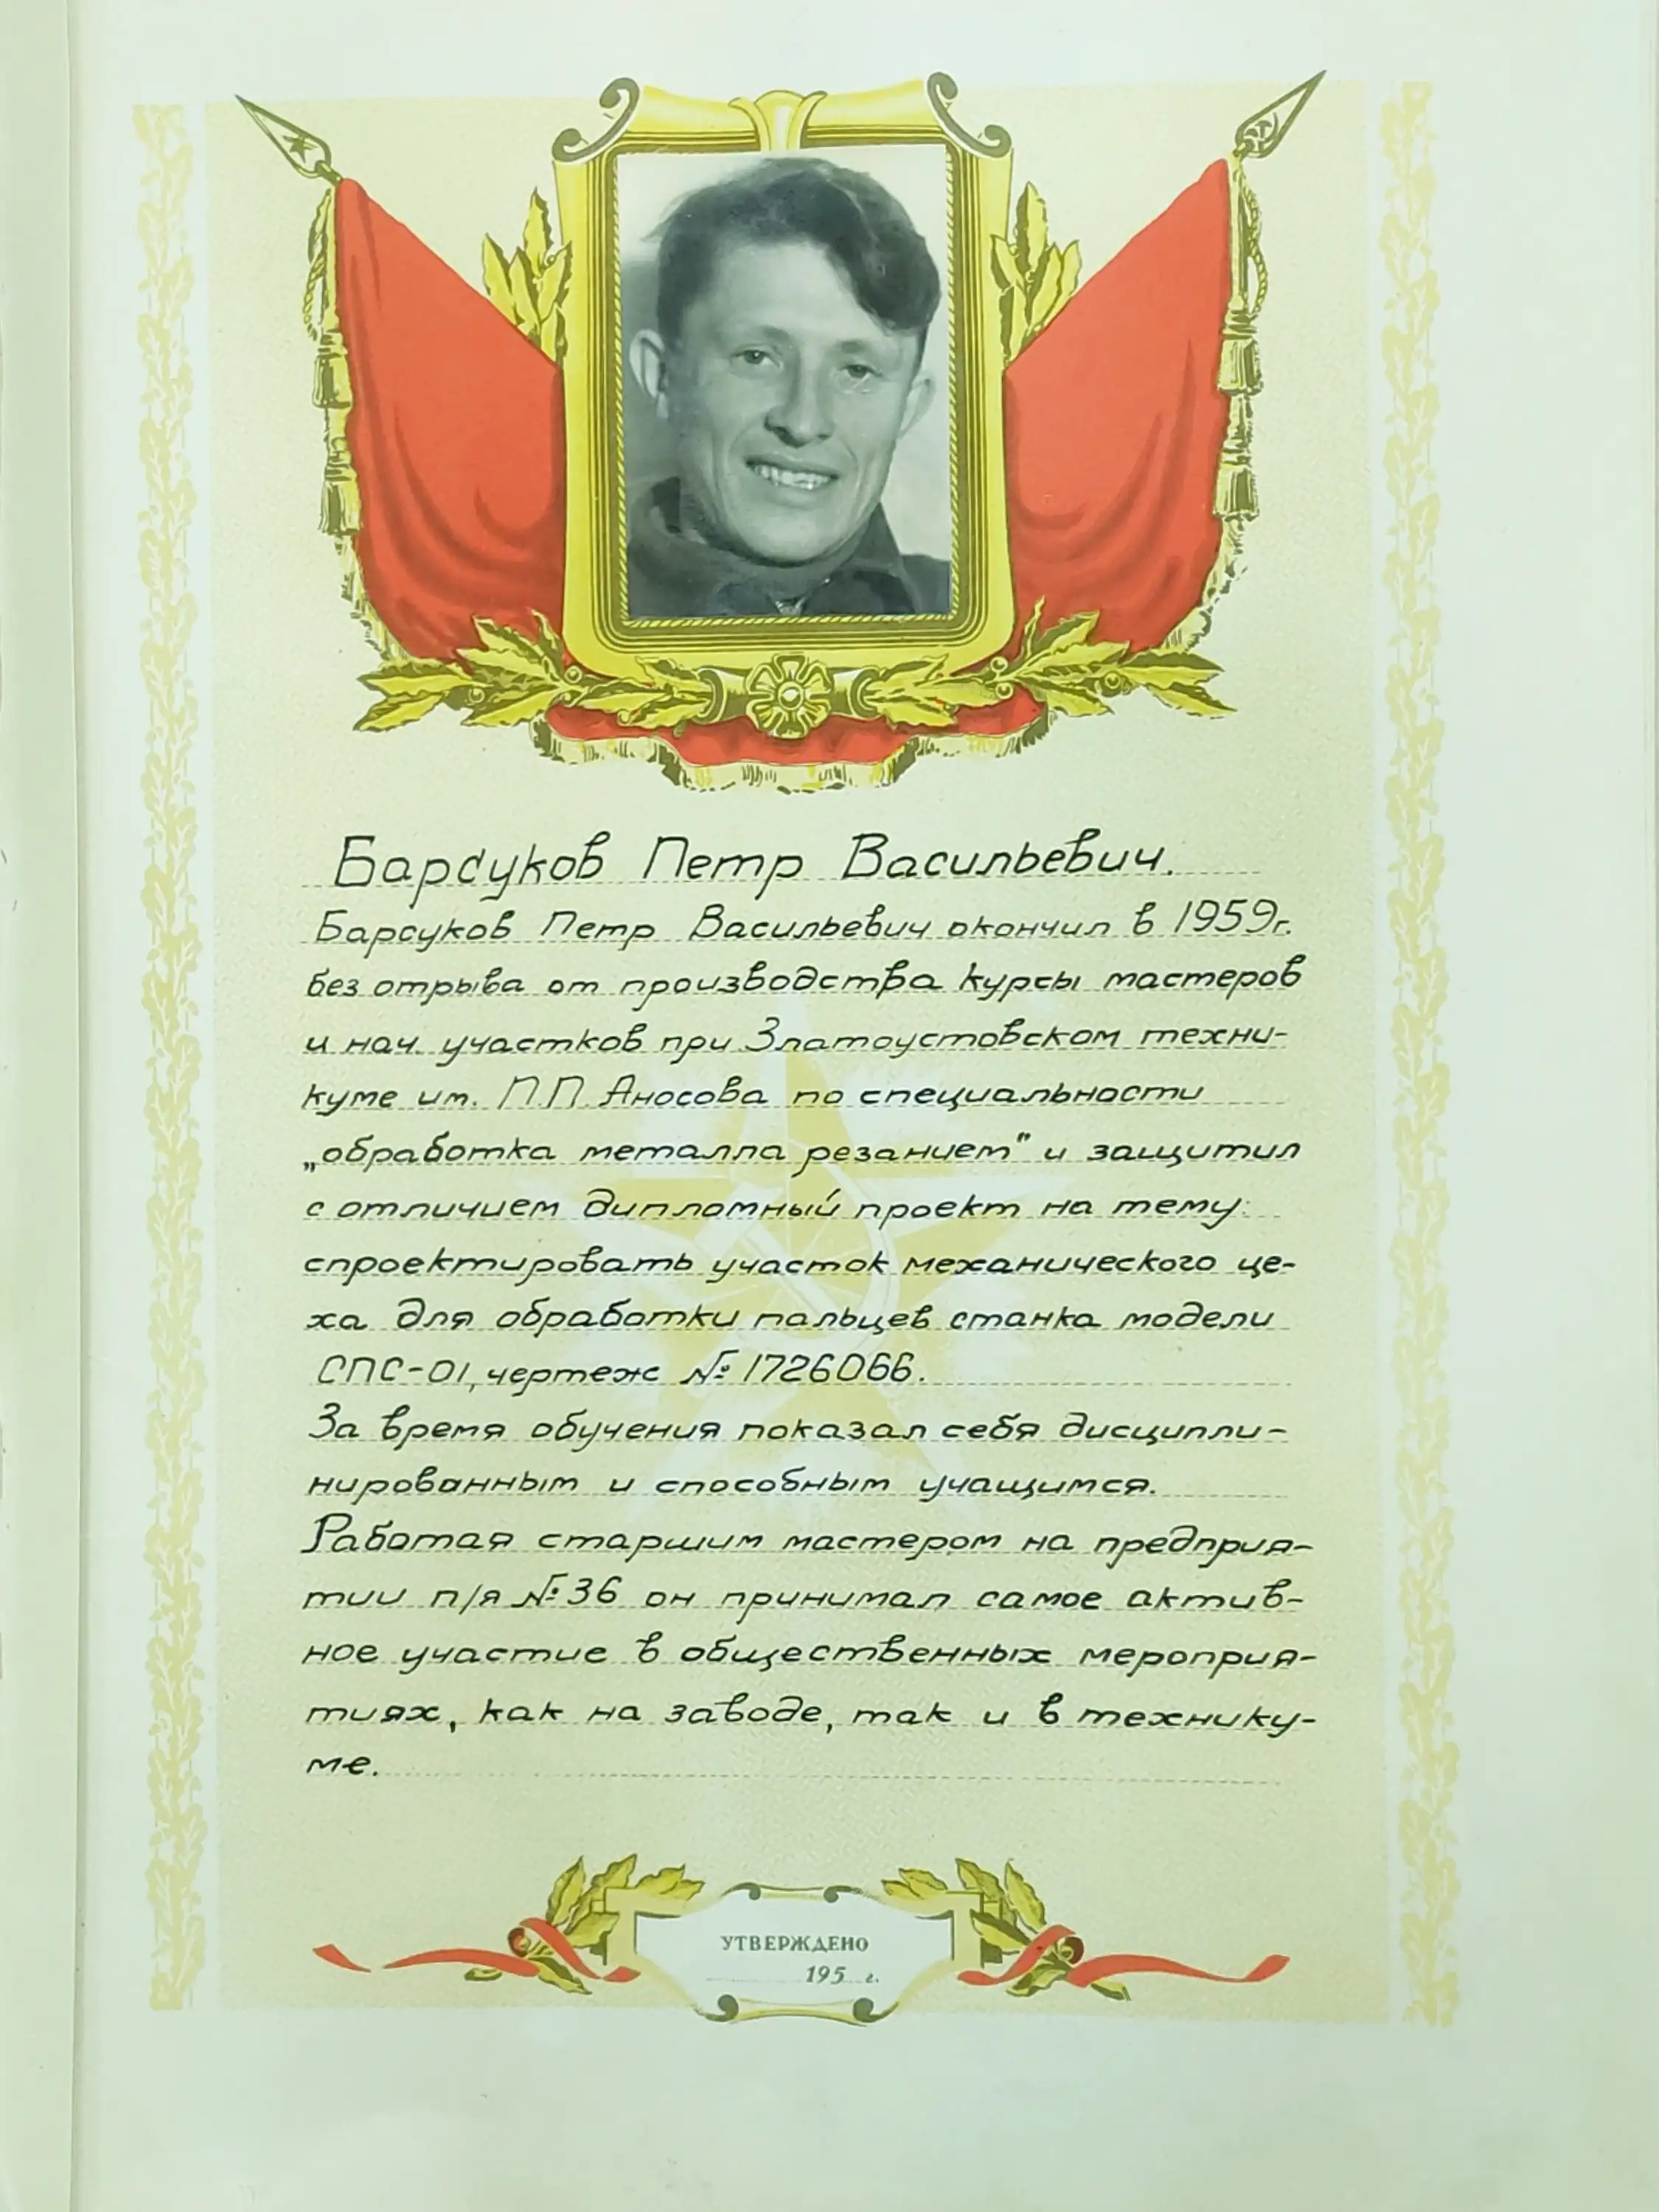 Барсуков Петр Васильевич.
Барсуков Петр Васильевич окончил в 1959г.
без отрыва от производства курсы мастеров
и нач. участков при Златоустовском техни-
куме им. П.П. Аносова по специальности
„обработка металла резанием" и защитил
с отличием дипломный проект на тему:
спроектировать участок механического це-
ха для обработки пальцев станка модели
СПС-01, чертеж № 1726066.
За время обучения показал себя дисципли-
нированным и способным учащимся.
Работая старшим мастером на предприя-
тии п/я № 36 он принимал самое актив-
ное участие в общественных мероприя-
тиях, как на заводе, так и в технику-
ме.
УТВЕРЖДЕНО
195 г.